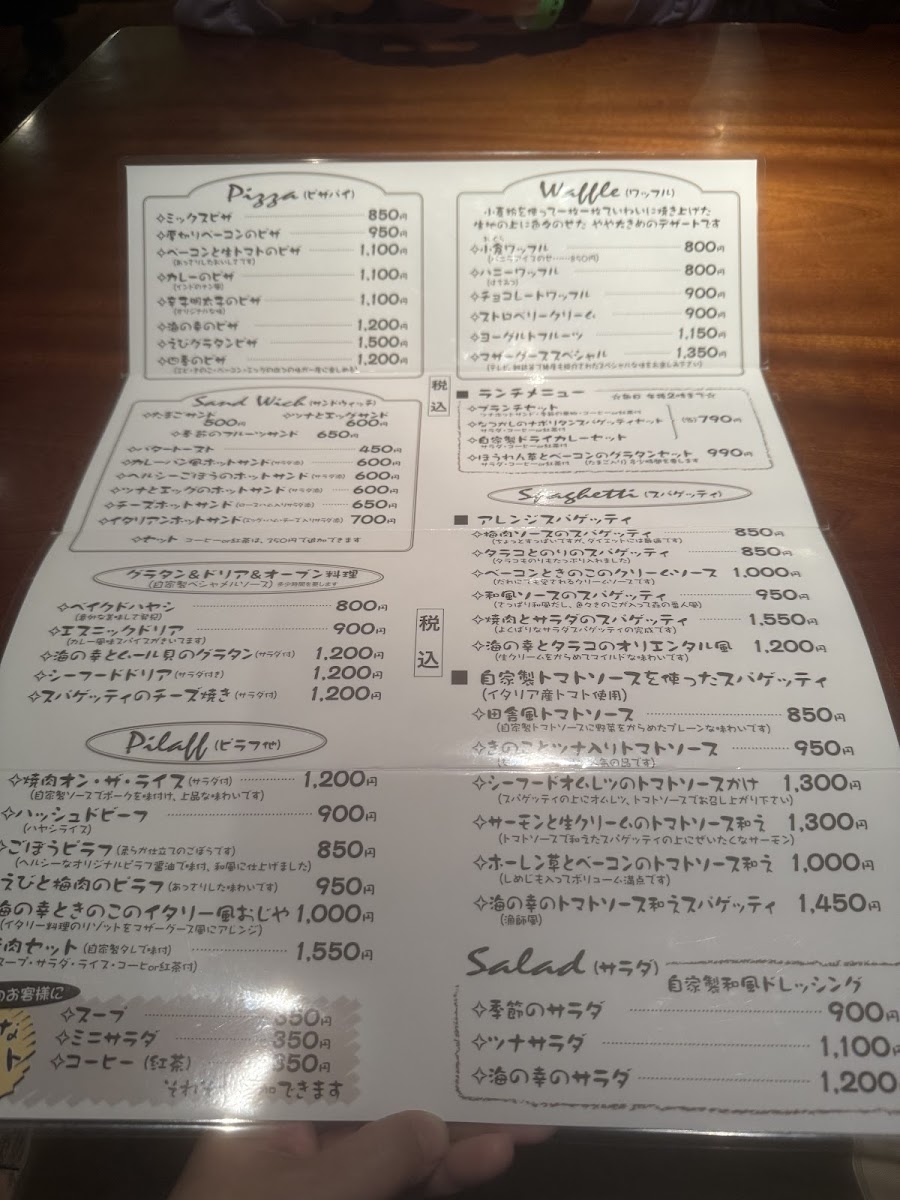 Pizza (ピザパイ)
✧ミックスピザ 850円
✧厚切りベーコンのピザ 950円
✧ベーコンと生トマトのピザ 1,100円
(あっさりしたおいしさです)
✧カレーのピザ 1,100円
(インドのナン風)
✧辛子明太子のピザ 1,100円
(オリジナルな味)
✧海の幸のピザ 1,200円
✧えびグラタンピザ 1,500円
✧四季のピザ 1,200円
(エビ・きのこ・ベーコン・ミックスの四つの味が一度に楽しめる)
Sand Wich (サンドウィッチ)
✧たまごサンド 500円
✧ツナとエッグサンド 600円
✧季節のフルーツサンド 650円
✧バタートースト 450円
✧カレーパン風ホットサンド(サラダ添) 600円
✧ヘルシーごぼうのホットサンド(サラダ添) 600円
✧ツナとエッグのホットサンド(サラダ添) 600円
✧チーズホットサンド(ロースハム入りサラダ添) 650円
✧イタリアンホットサンド(エッグ・ハム・チーズ入りサラダ添) 700円
✧セット コーヒーor紅茶は、250円で追加できます
グラタン&ドリア&オーブン料理
(自家製ベシャメルソース) 多少時間を要します
✧ベイクドハヤシ 800円
✧エスニックドリア 900円
(カレー風味スパイスがきいてます)
✧海の幸とムール貝のグラタン(サラダ付) 1,200円
✧シーフードドリア(サラダ付き) 1,200円
✧スパゲッティのチーズ焼き(サラダ付) 1,200円
Pilaff (ピラフ他)
✧焼肉オン・ザ・ライス(サラダ付) 1,200円
(自家製ソースでポークを味付け、上品な味わいです)
✧ハッシュドビーフ 900円
(ハヤシライス)
✧ごぼうピラフ(柔らか仕立てのごぼうです) 850円
(ヘルシーなオリジナルピラフ醤油で味付、和風に仕上げました)
えびと梅肉のピラフ(あっさりした味わいです) 950円
海の幸ときのこのイタリー風おじや 1,000円
(イタリー料理のリゾットをマザーグース風にアレンジ)
肉セット(自家製タレで味付) 1,550円
スープ・サラダ・ライス・コーヒーor紅茶付)
のお客様に
✧スープ 350円
✧ミニサラダ 350円
✧コーヒー(紅茶) 350円
できます
税込
税込
Waffle (ワッフル)
小麦粉を使って一枚一枚ていねいに焼き上げた
生地の上に色々のせた やや大きめのデザートです
✧小倉ワッフル 800円
おぐら
(バニラアイスのせ……850円)
✧ハニーワッフル 800円
(はちみつ)
✧チョコレートワッフル 900円
✧ストロベリークリーム 900円
✧ヨーグルトフルーツ 1,150円
✧マザーグーススペシャル 1,350円
■ ランチメニュー ☆毎日 午後2時まで☆
✧ブランチセット
✧なつかしのナポリタンスパゲッティセット
サラダ・コーヒーor紅茶付
✧自家製ドライカレーセット
サラダ・コーヒーor紅茶付
(各)790円
✧ほうれん草とベーコンのグラタンセット 990円
サラダ・コーヒーor紅茶付 (たまご入り) 多少時間を要します
Spaghetti (スパゲッティ)
■ アレンジスパゲッティ
✧梅肉ソースのスパゲッティ 850円
(ちょっとすっぱいですが、ダイエットには最適です)
✧タラコとのりのスパゲッティ 850円
(タラコものりもたっぷり入れました)
✧ベーコンときのこのクリームソース 1,000円
(だれにでも愛されるクリームソースです)
✧和風ソースのスパゲッティ 950円
(さっぱり和風だし、色々きのこが入って森の番人風)
✧焼肉とサラダのスパゲッティ 1,550円
(よくばりなサラダスパゲッティの完成です)
✧海の幸とタラコのオリエンタル風 1,200円
(生クリームをからめてマイルドな味わいです)
■ 自家製トマトソースを使ったスパゲッティ
(イタリア産トマト使用)
✧田舎風トマトソース 850円
(自家製トマトソースに野菜をからめたプレーンな味わいです)
✧きのことツナ入りトマトソース 950円
✧シーフードオムレツのトマトソースかけ 1,300円
(スパゲッティの上にオムレツ、トマトソースでお召し上がり下さい)
✧サーモンと生クリームのトマトソース和え 1,300円
(トマトソースで和えたスパゲッティの上にぜいたくなサーモン)
✧ホーレン草とベーコンのトマトソース和え 1,000円
(しめじも入ってボリューム満点です)
✧海の幸のトマトソース和えスパゲッティ 1,450円
(漁師風)
Salad (サラダ)
自家製和風ドレッシング
✧季節のサラダ 900円
✧ツナサラダ 1,100円
✧海の幸のサラダ 1,200